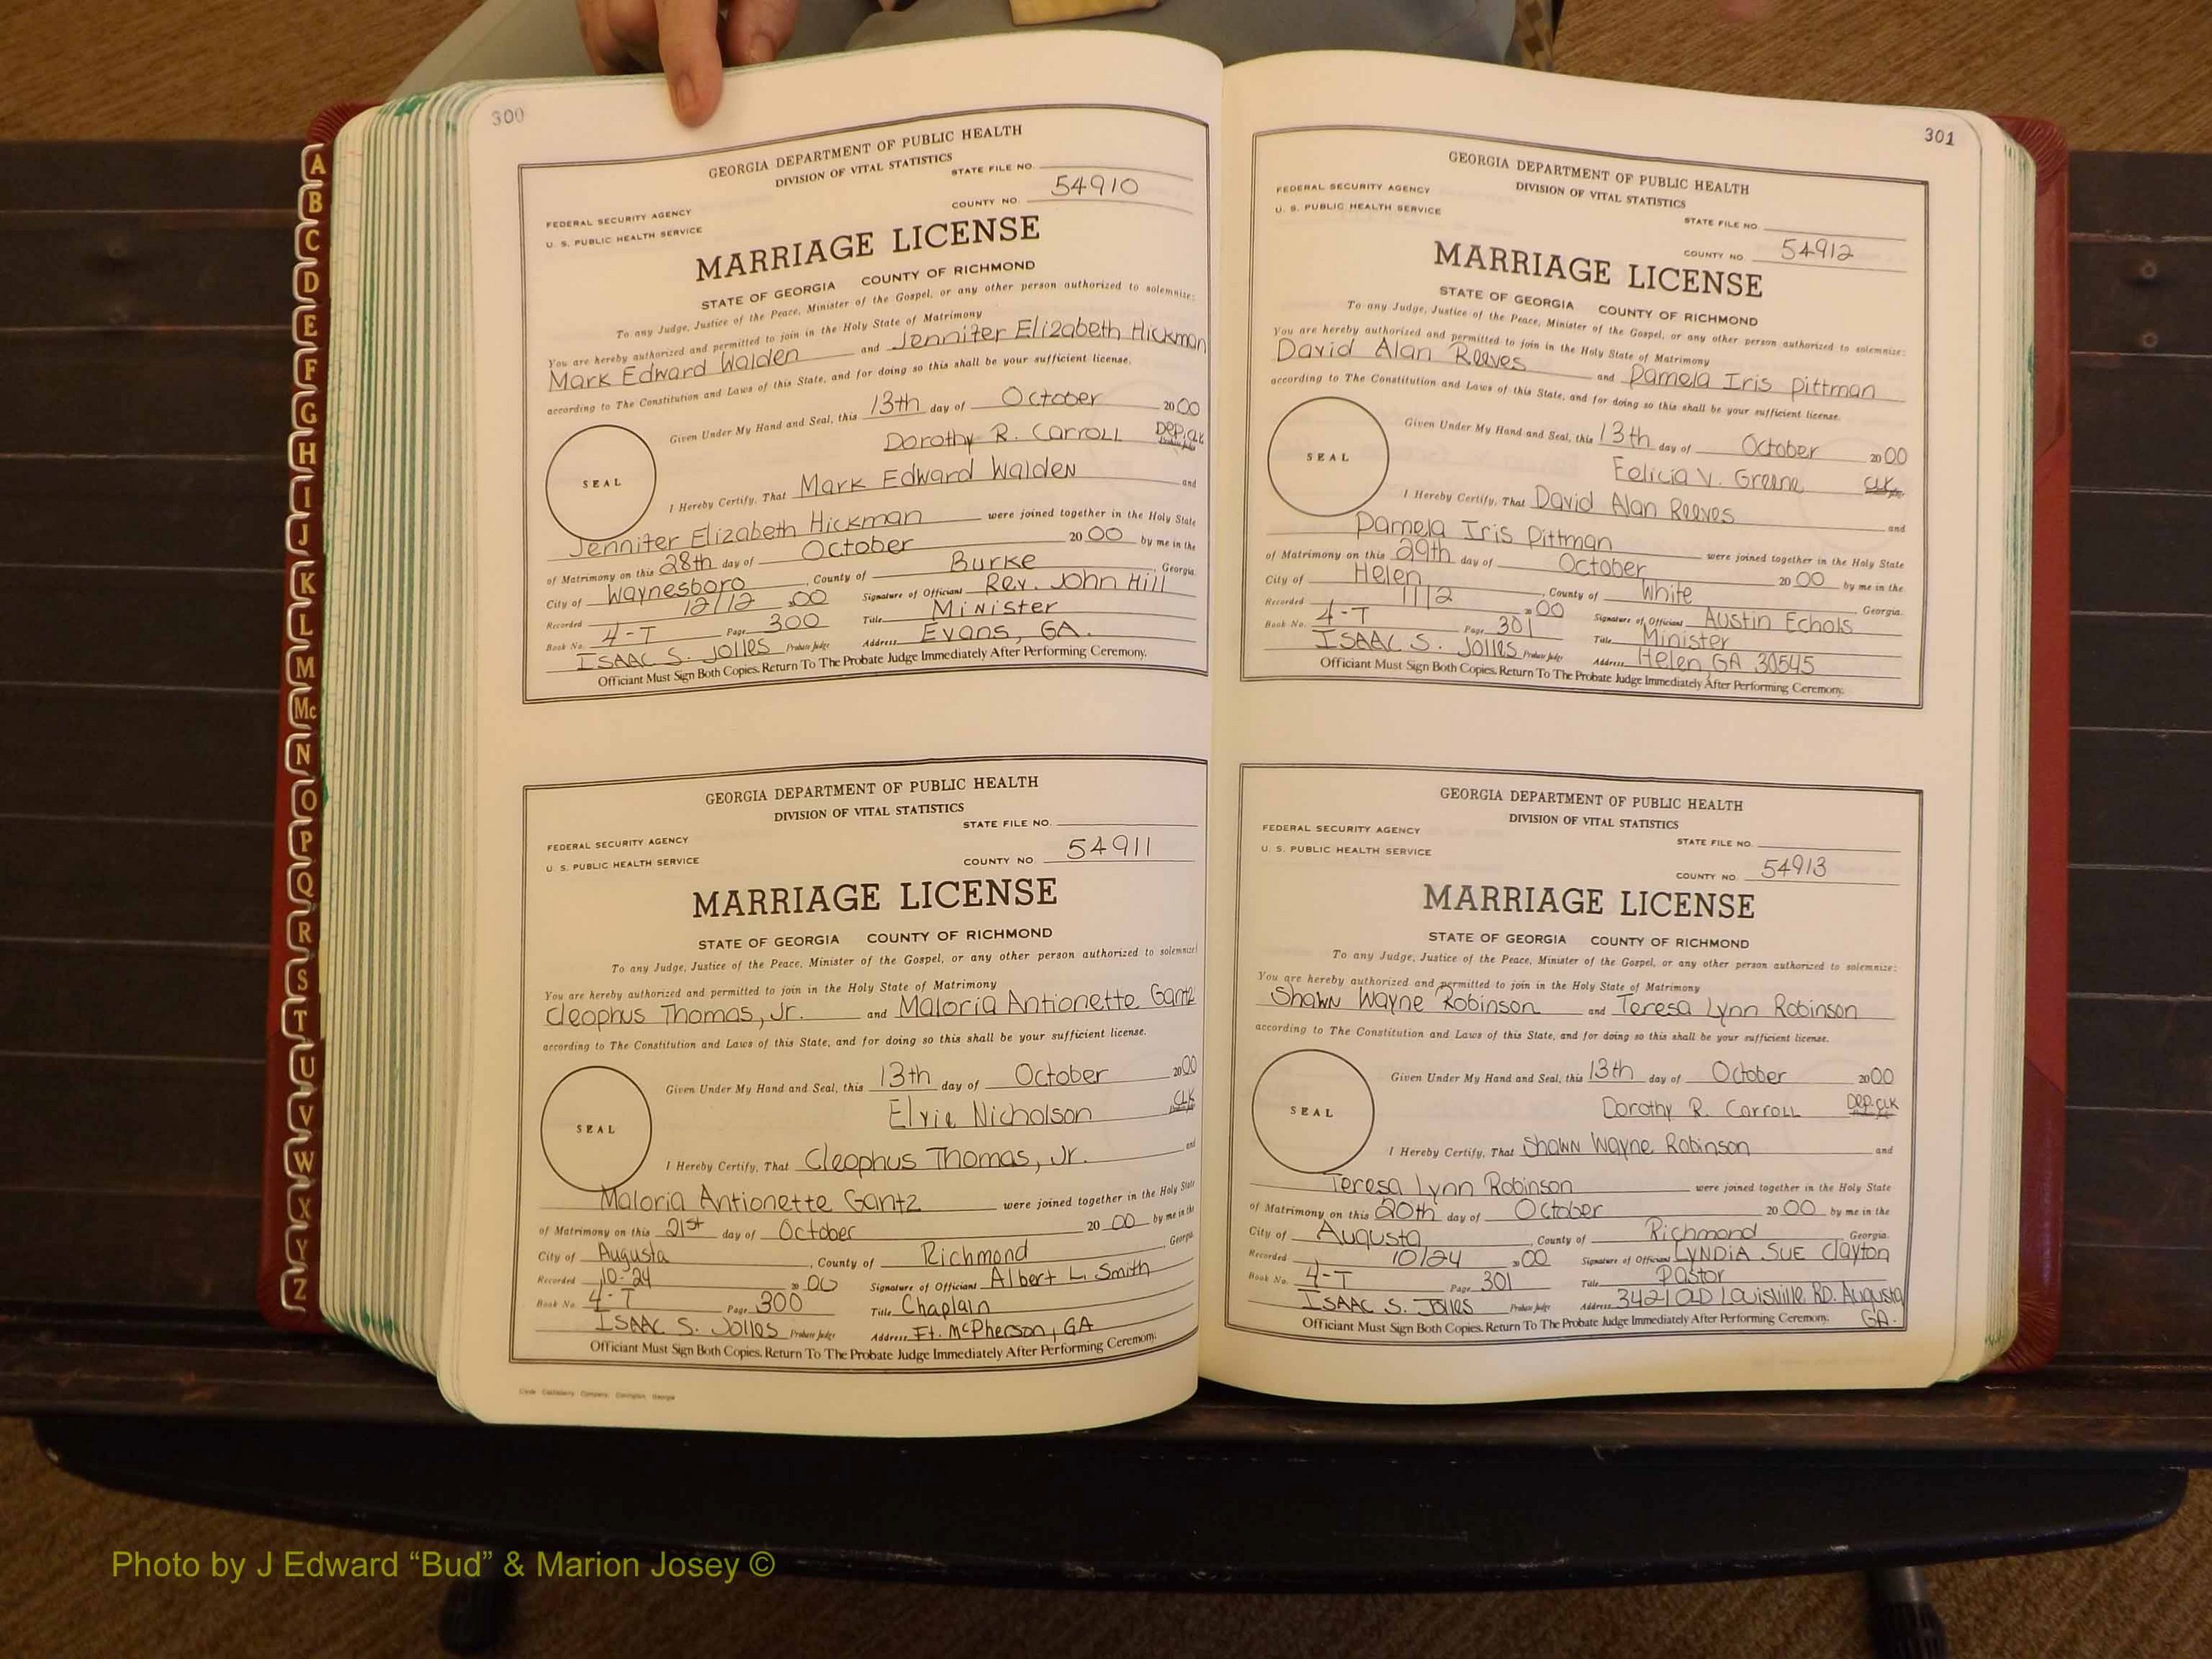 300
GEORGIA DEPARTMENT OF PUBLIC HEALTH
DIVISION OF VITAL STATISTICS
STATE FILE NO.
FEDERAL SECURITY AGENCY
U. S. PUBLIC HEALTH SERVICE
COUNTY NO. 54910
MARRIAGE LICENSE
STATE OF GEORGIA COUNTY OF RICHMOND
To any Judge, Justice of the Peace, Minister of the Gospel, or any other person authorized to solemnize:
You are hereby authorized and permitted to join in the Holy State of Matrimony
Mark Edward Walden and Jennifer Elizabeth Hickman
according to The Constitution and Laws of this State, and for doing so this shall be your sufficient license.
Given Under My Hand and Seal, this 13th day of October 2000
Dorothy R. Carroll Dep. CLK
SEAL
I Hereby Certify, That Mark Edward Walden and
Jennifer Elizabeth Hickman were joined together in the Holy State
of Matrimony on this 28th day of October 20 00 by me in the
City of Waynesboro, County of Burke, Georgia.
Recorded 12/12 00 Signature of Officiant Rev. John Hill
Book No. 4-T Page 300 Title Minister
ISAAC S. Jolles Probate Judge Address Evans, GA.
Officiant Must Sign Both Copies. Return To The Probate Judge Immediately After Performing Ceremony.
GEORGIA DEPARTMENT OF PUBLIC HEALTH
DIVISION OF VITAL STATISTICS
STATE FILE NO.
FEDERAL SECURITY AGENCY
U. S. PUBLIC HEALTH SERVICE
COUNTY NO. 54911
MARRIAGE LICENSE
STATE OF GEORGIA COUNTY OF RICHMOND
To any Judge, Justice of the Peace, Minister of the Gospel, or any other person authorized to solemnize:
You are hereby authorized and permitted to join in the Holy State of Matrimony
Cleophus Thomas, Jr. and Maloria Antionette Gantz
according to The Constitution and Laws of this State, and for doing so this shall be your sufficient license.
Given Under My Hand and Seal, this 13th day of October 2000
Elvie Nicholson CLK
SEAL
I Hereby Certify, That Cleophus Thomas, Jr. and
Maloria Antionette Gantz were joined together in the Holy State
of Matrimony on this 21st day of October 20 00 by me in the
City of Augusta, County of Richmond, Georgia
Recorded 10-24 20 00 Signature of Officiant Albert L. Smith
Book No. 4-T Page 300 Title Chaplain
ISAAC S. Jolles Probate Judge Address Ft. McPherson, GA
Officiant Must Sign Both Copies. Return To The Probate Judge Immediately After Performing Ceremony.
301
GEORGIA DEPARTMENT OF PUBLIC HEALTH
DIVISION OF VITAL STATISTICS
FEDERAL SECURITY AGENCY
U. S. PUBLIC HEALTH SERVICE
STATE FILE NO.
COUNTY NO. 54912
MARRIAGE LICENSE
STATE OF GEORGIA COUNTY OF RICHMOND
To any Judge, Justice of the Peace, Minister of the Gospel, or any other person authorized to solemnize:
You are hereby authorized and permitted to join in the Holy State of Matrimony
David Alan Reeves and Pamela Iris Pittman
according to The Constitution and Laws of this State, and for doing so this shall be your sufficient license.
Given Under My Hand and Seal, this 13th day of October 2000
Felicia V. Greene CLK
SEAL
I Hereby Certify, That David Alan Reeves and
Pamela Iris Pittman were joined together in the Holy State
of Matrimony on this 29th day of October 20 00 by me in the
City of Helen, County of White, Georgia.
Recorded 11/2 20 00 Signature of Officiant Austin Echols
Book No. 4-T Page 301 Title Minister
ISAAC S. Jolles Probate Judge Address Helen, GA 30545
Officiant Must Sign Both Copies. Return To The Probate Judge Immediately After Performing Ceremony.
GEORGIA DEPARTMENT OF PUBLIC HEALTH
DIVISION OF VITAL STATISTICS
FEDERAL SECURITY AGENCY
U. S. PUBLIC HEALTH SERVICE
STATE FILE NO.
COUNTY NO. 54913
MARRIAGE LICENSE
STATE OF GEORGIA COUNTY OF RICHMOND
To any Judge, Justice of the Peace, Minister of the Gospel, or any other person authorized to solemnize:
You are hereby authorized and permitted to join in the Holy State of Matrimony
Shawn Wayne Robinson and Teresa Lynn Robinson
according to The Constitution and Laws of this State, and for doing so this shall be your sufficient license.
Given Under My Hand and Seal, this 13th day of October 2000
Dorothy R. Carroll Dep. CLK
SEAL
I Hereby Certify, That Shawn Wayne Robinson and
Teresa Lynn Robinson were joined together in the Holy State
of Matrimony on this 20th day of October 20 00 by me in the
City of Augusta, County of Richmond Georgia.
Recorded 10/24 00 Signature of Officiant LYNDiA SUE Clayton
Book No. 4-T Page 301 Title Pastor
ISAAC S. Jolles Probate Judge Address 3421 OLD Louisville RD. Augusta
GA.
Officiant Must Sign Both Copies. Return To The Probate Judge Immediately After Performing Ceremony.
A
B
C
D
E
F
G
H
I
J
K
L
M
Mc
N
O
P
Q
R
S
T
U
V
W
X
Y
Z
Photo by J Edward “Bud” & Marion Josey ©